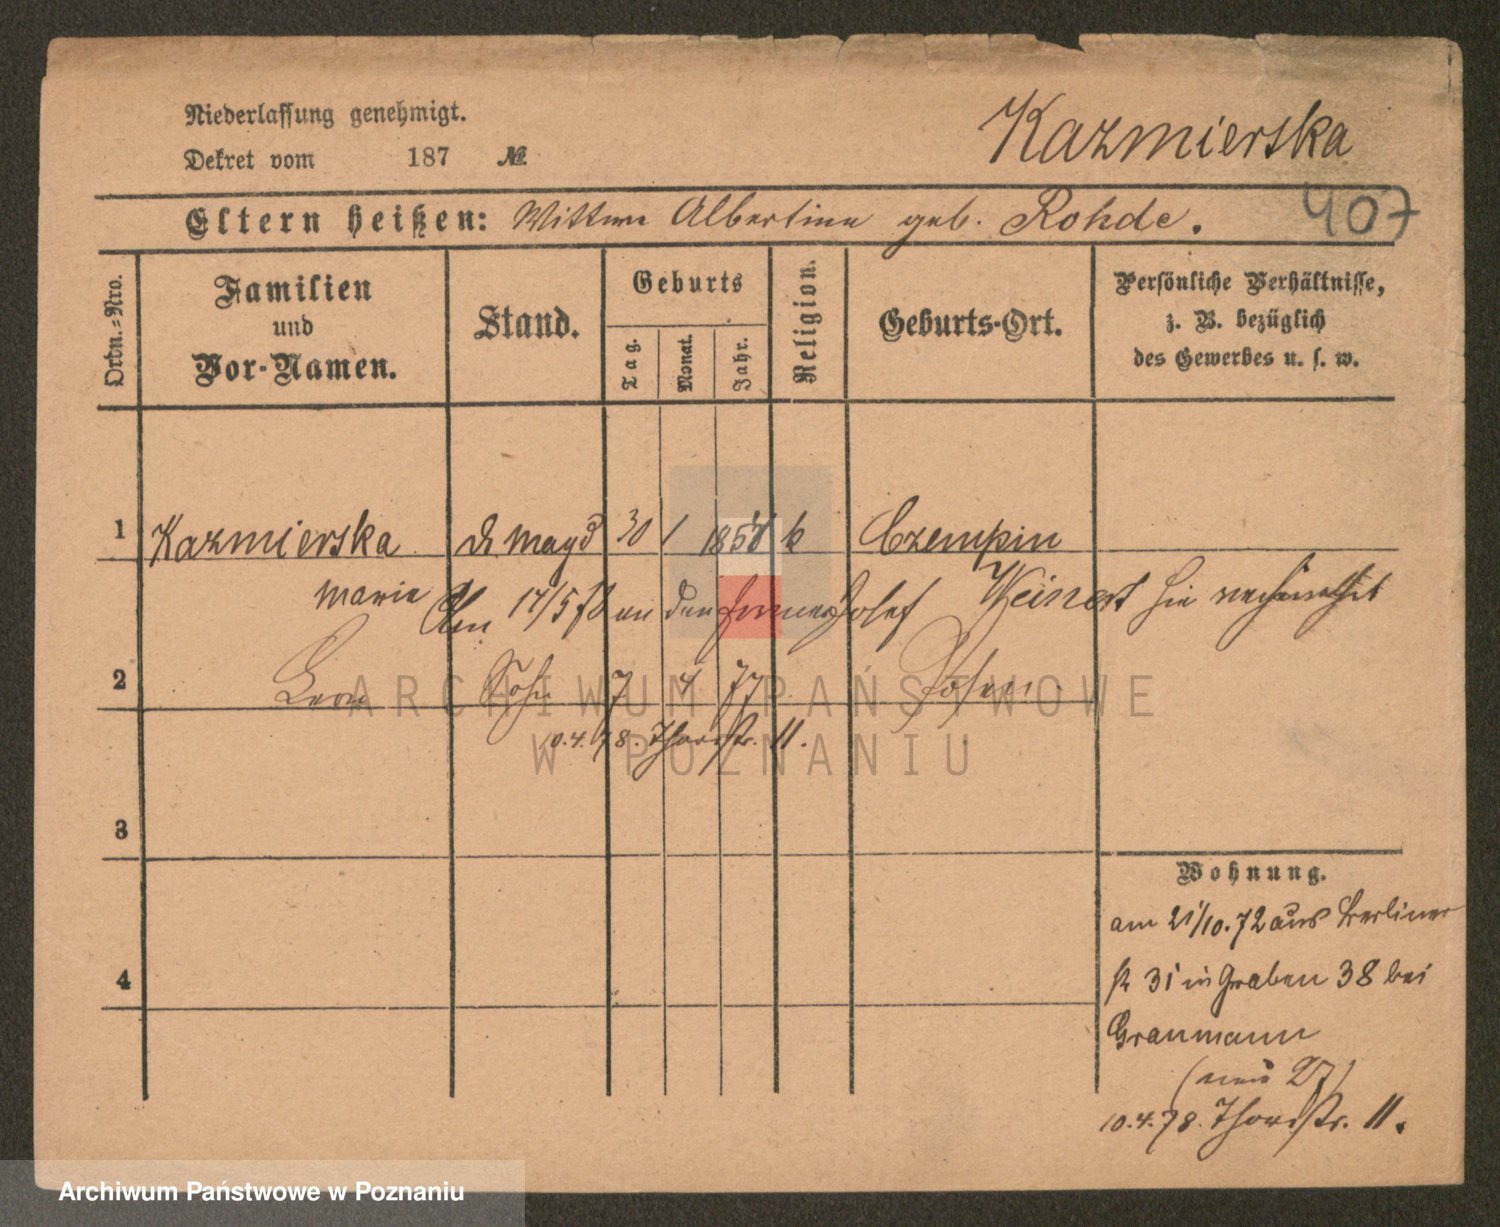 Niederlassung genehmigt.
Dekret vom 187 №
Kazmierska
Eltern heißen: Wittwe Albertine geb. Rohde.
407
Ordn.-Nro.
Familien und Vor-Namen.
Stand.
Geburts
Tag.
Monat.
Jahr.
Religion.
Geburts-Ort.
Persönliche Verhältnisse,
z. B. bezüglich
des Gewerbes u. s. w.
1 Kazmierska d Magd 30 1 185 k Czempin
Marie
Am 14/5 78 an den Josef Weinert hie verheirathet
2 Leon Sohn 7 4 77 Posen
10.4.78. Thorstr. 11.
3
4
Wohnung.
am 21/10.72 aus Berliner
st 31 in Graben 38 bei
Graumann
(neu 27)
10.4.78. Thorstr. 11.
ARCHIWUM PAŃSTWOWE
W POZNANIU
Archiwum Państwowe w Poznaniu